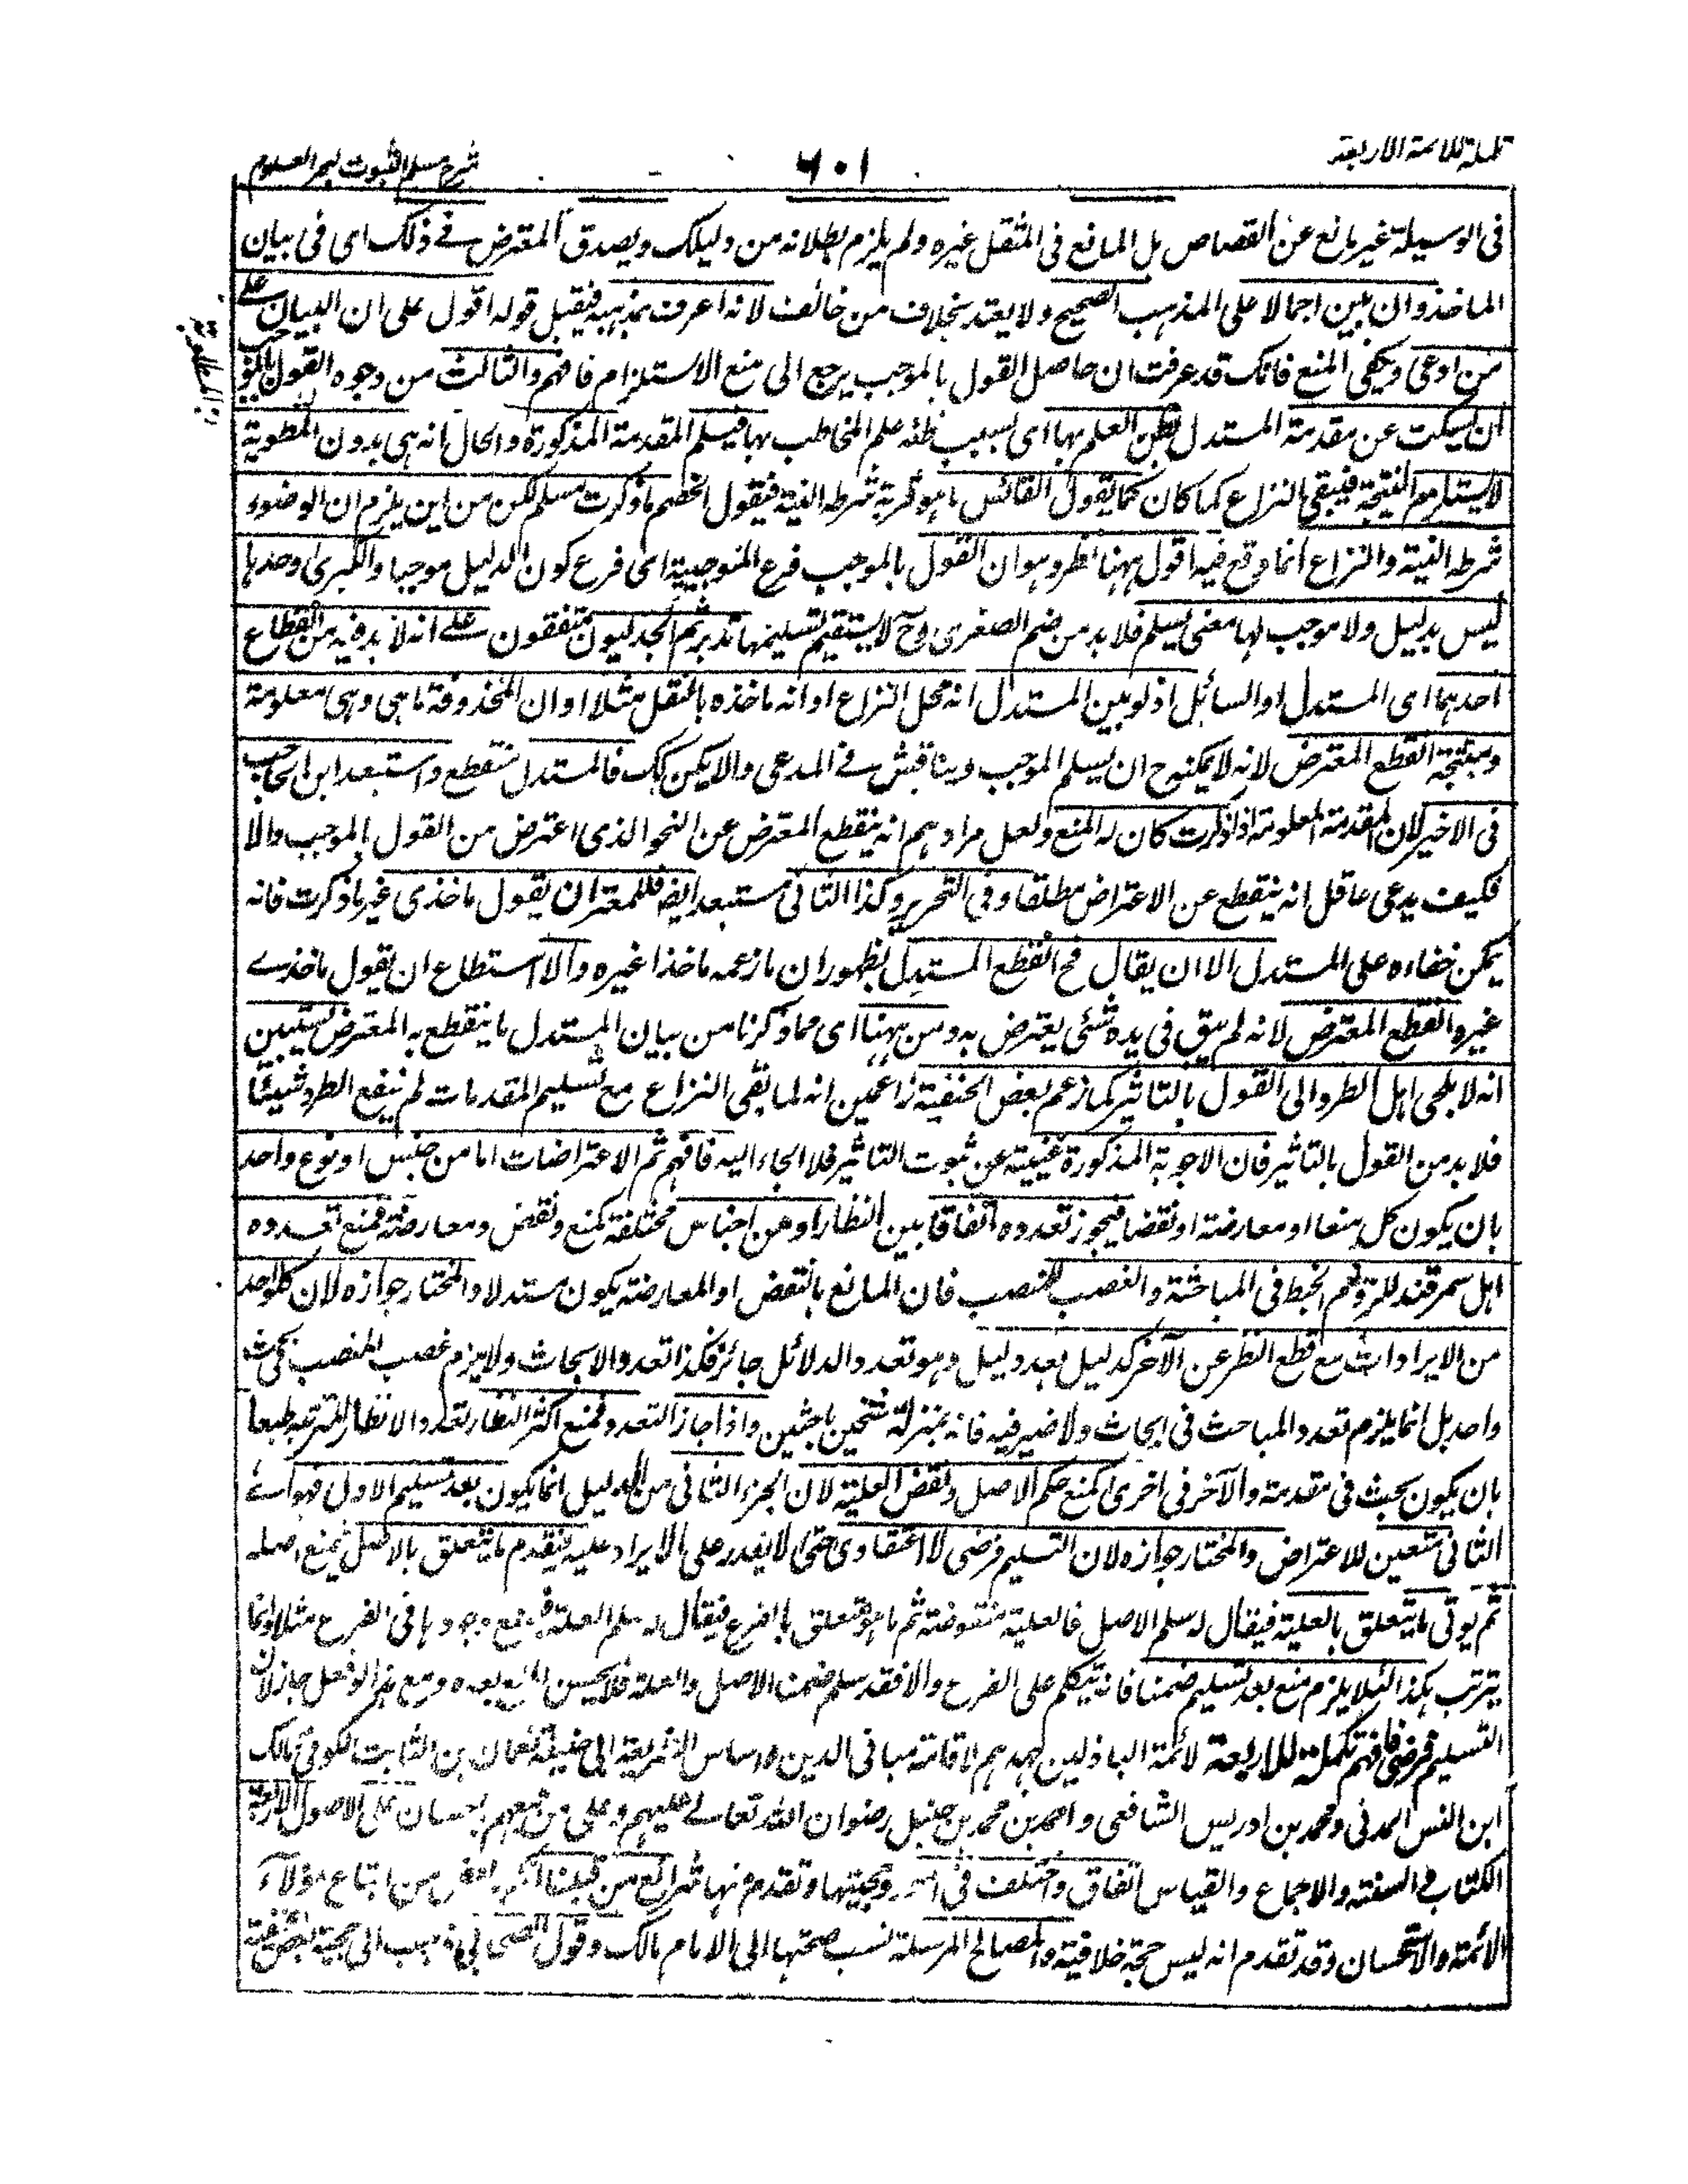 تكملة للائمة الاربعة
٦٠١
شرح مسلم الثبوت لبحر العلوم
فى الوسيلة غير مانع عن القصاص بل المانع فى المثقل غيره ولم يلزم بطلانه من دليلك ويصدق المعترض فے ذلك اى فى بيان
الماخذ وان بين اجمالا على المذهب الصحيح ولا يعتد بخلاف من خالف لانه اعرف بمذهبه فيقبل قوله اقول على ان البيان علے
من ادعى ويكفى المنع فانك قد عرفت ان حاصل القول بالموجب يرجع الى منع الاستلزام فافهم والثالث من وجوه القول بالموجب
ان يسكت عن مقدمة المستدل لظن العلم بها اى لسبب ظنه علم المخاطب بها فيسلم المقدمة المذكورة والحال انه هى بدون المطوية
لا يستلزم النتيجة فيبقى النزاع كما كان كما يقول القائس ما هو قربة شرطه النية فيقول الخصم ما ذكرت مسلم لكن من اين يلزم ان الوضوء
شرطه النية والنزاع انما وقع فيه اقول ههنا نظر وهو ان القول بالموجب فرع الموجبية اى فرع كون الدليل موجبا والكبرى وحدها
ليس بدليل ولا موجب لها معنى يسلم فلا بد من ضم الصغرى وح لا يستقيم تسليمها تدبر ثم الجدليون متفقون علے انه لا بد فيه من انقطاع
احدهما اى المستدل او السائل اذ لو بين المستدل انه محل النزاع او انه ماخذه بالنقل مثلا او ان المحذوفة ما هى وهى معلومة
ومنتجة انقطع المعترض لانه لا يمكنه ح ان يسلم الموجب ويناقش فے المدعى والا يكن كك فالمستدل منقطع واستبعد ابن الحاجب
فى الاخير لان المقدمة المعلومة اذا ذكرت كان له المنع ولعل مرادهم انه ينقطع المعترض عن النحو الذى اعترض من القول بالموجب والا
فكيف يدعى عاقل انه ينقطع عن الاعتراض مطلقا وفى التحرير وكذا الثانى مستبعد ايضا فللمعترض ان يقول ماخذى غير ما ذكرت فانه
يمكن خفاءه على المستدل الا ان يقال فح انقطع المستدل بظهور ان ما زعمه ماخذا غيره والا استطاع ان يقول ماخذے
غيره انقطع المعترض لانه لم يبق فى يده شئى يعترض به ومن ههنا اى مما ذكرنا من بيان المستدل ما ينقطع به المعترض يستبين
انه لا يلجى اهل الطرد الى القول بالتاثير كما زعم بعض الحنفية زاعمين انه لما بقى النزاع مع تسليم المقدمات لم ينفع الطرد شيئا
فلا بد من القول بالتاثير فان الاجوبة المذكورة غنيية عن ثبوت التاثير فلا الجاء اليه فافهم ثم الاعتراضات اما من جنس او نوع واحد
بان يكون كل منعا او معارضة او نقضا فيجوز تعدده اتفاقا بين النظار او من اجناس مختلفة كمنع ونقض ومعارضة فمنع تعدده
اهل سمرقند للزوم الخبط فى المباحثة والغصب للمنصب فان المانع بالنقض او المعارضة يكون مستدلا والمختار جوازه لان كل واحد
من الايرادات مع قطع النظر عن الآخر كدليل بعد دليل وهو تعدد الدلائل جائز فكذا تعدد الابحاث ولا يلزم غصب المنصب بحث
واحد بل انما يلزم تعدد المباحث فى ابحاث ولا ضير فيه فانه بمنزلة شخصين باحثين واذا جاز التعدد فمنع اكثر النظار تعدد الانظار المترتبة طبعا
بان يكون بحث فى مقدمة والآخر فى اخرى كمنع حكم الاصل ونقض العلية لان الجزء الثانى من الدليل انما يكون بعد تسليم الاول فهو اے
الثانى متعين للاعتراض والمختار جوازه لان التسليم فرضى لا اعتقادى حتى لا يقدر على الايراد عليه فيقدم ما يتعلق بالاصل بمنع اصله
ثم يوتى ما يتعلق بالعلية فيقال لو سلم الاصل فالعلية منقوضة ثم ما هو متعلق بالفرع فيقال لو سلم العلة فيمنع وجودها فى الفرع مثلا وانما
يترتب هكذا لئلا يلزم منع بعد تسليم ضمنا فانه يتكلم على الفرع والا فقد سلم ضمنا الاصل والعلة فلا يحسن المنع بعده ومع هذا لو فعل جاز لان
التسليم فرضى فافهم تكملة للاربعة لائمة الباذلين جهدهم لاقامة مبانى الدين واساس الشريعة ابى حنيفة نعمان بن الثابت الكوفى مالك
ابن انس المدنى ومحمد بن ادريس الشافعى واحمد بن محمد بن حنبل رضوان الله تعالے عليهم وعلى من تبعهم باحسان على الاصول الاربعة
الكتاب والسنة والاجماع والقياس اتفاق واختلف فى وحجيتها وتقدم منها شرائع من قبلنا من اتباع هؤلاء
الائمة والاستحسان وقد تقدم انه ليس حجة خلافية والمصالح المرسلة نسب صحتها الى الامام مالك وقول الصحابى ذهب الى حجية